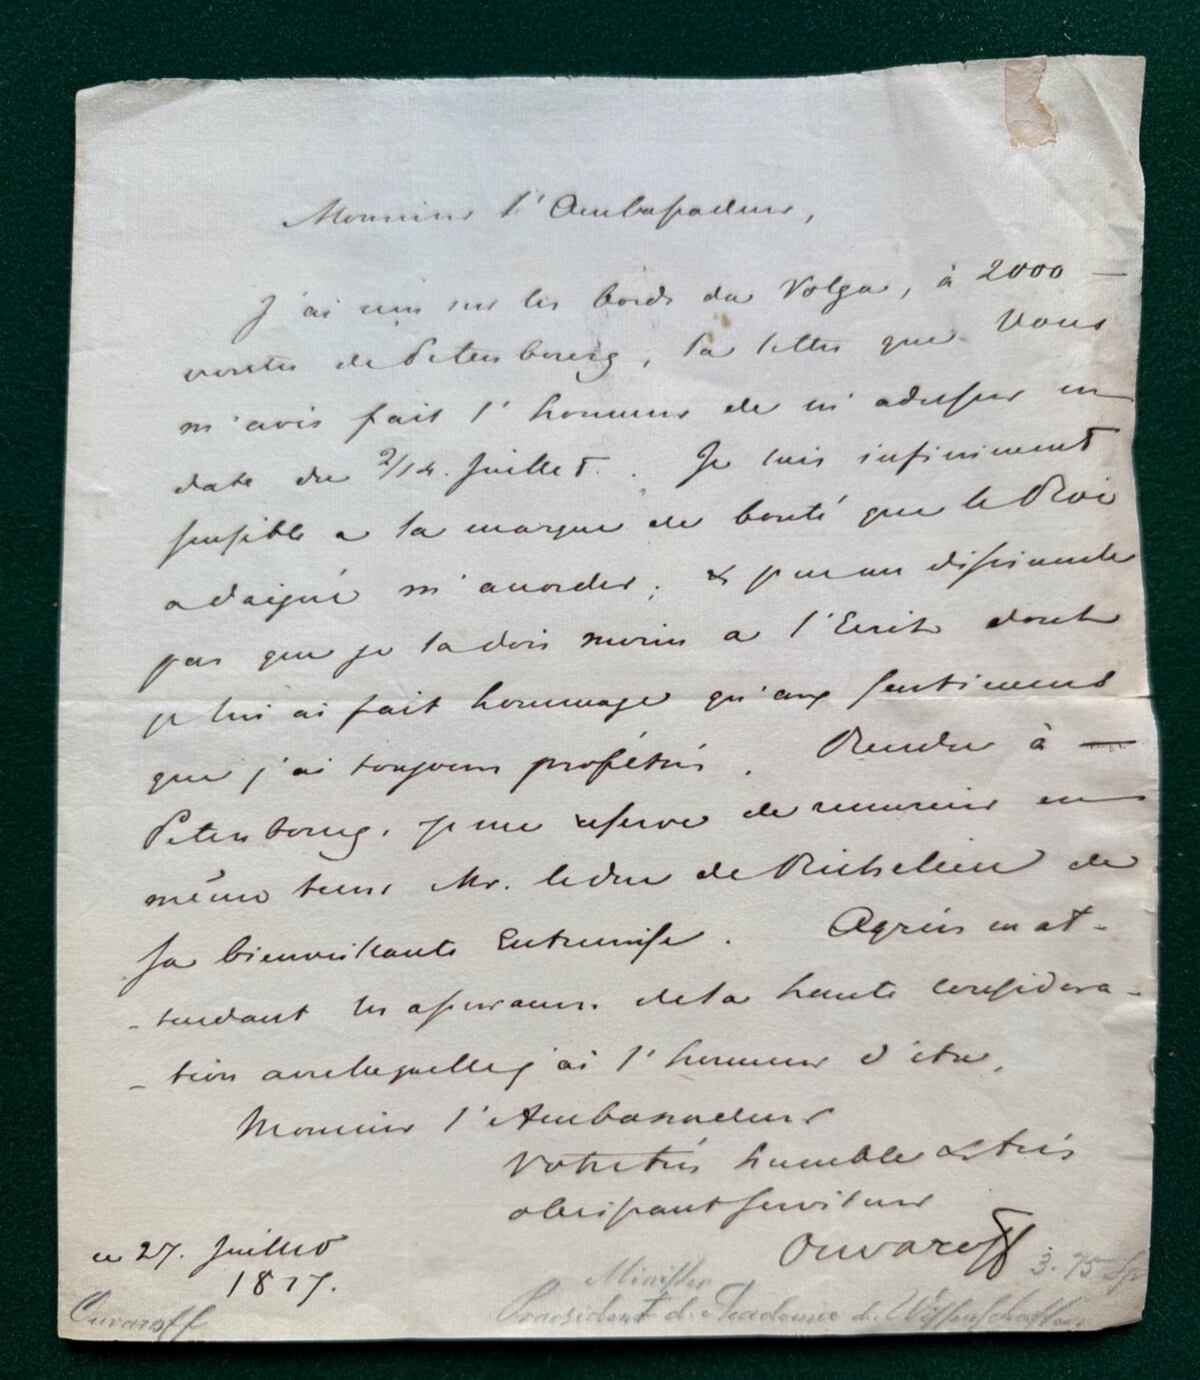 Monsieur l'Ambassadeur,
J'ai reçu sur les bords du Volga, à 2000 —
verstes de Petersbourg, la lettre que Vous
m'avés fait l'honneur de m'adresser en
date du 2/14. Juillet. Je suis infiniment
sensible a la marque de bonté que le Roi
a daigné m'accorder; & ne me dissimule
pas que je la dois moins a l'Ecrit dont
je lui ai fait hommage qu'aux sentimens
que j'ai toujours professés. Rendu à —
Petersbourg, je me reserve de remercier en
même tems Mr. le duc de Richelieu de
sa bienveillante Entremise. Agréés en at-
-tendant les assurances de la haute considera-
-tion avec laquelle j'ai l'honneur d'etre,
Monsieur l'Ambassadeur
Votre très humble & très
obeissant serviteur
Ouvaroff
ce 27. Juillet
1817.
Ouvaroff
Minister
Praesident d. Academie d. Wissenschaften
3. 75